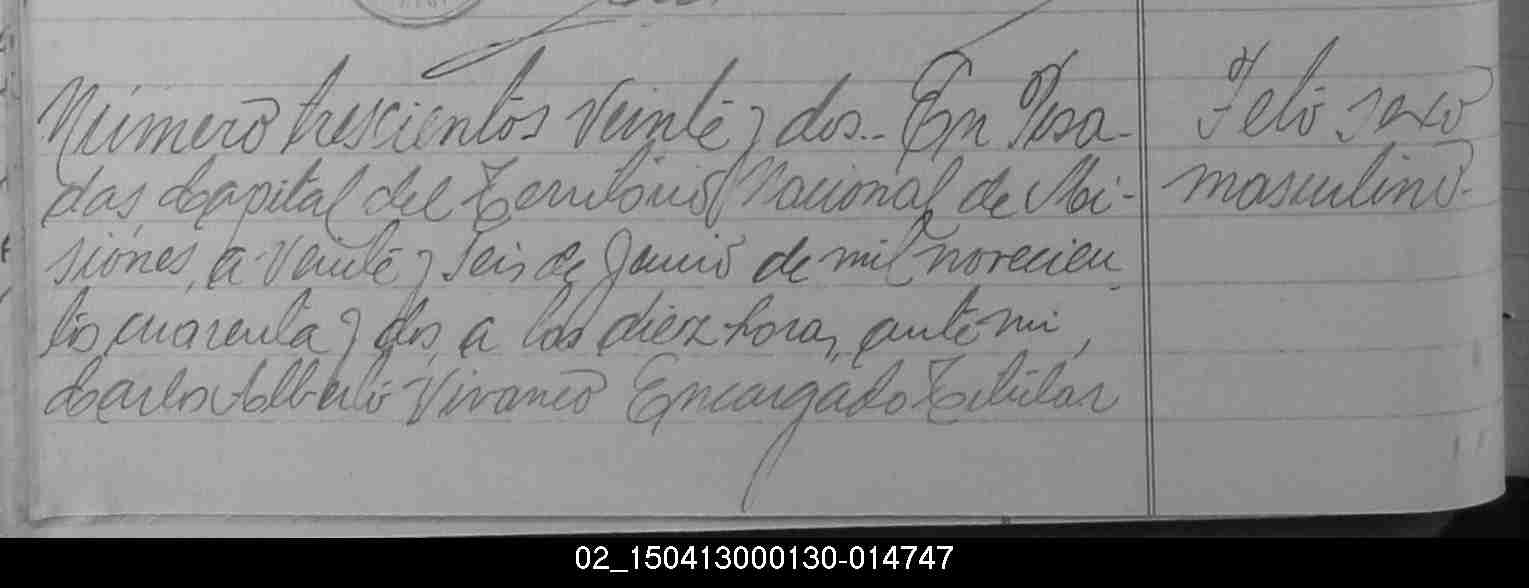 Número trescientos veinte y dos.- En Posa-
das, Capital del Territorio Nacional de Mi-
siones, a veinte y seis de Junio de mil novecien
tos cuarenta y dos, a las diez horas, ante mi,
Carlos Alberto Vivanco Encargado Titular
Feto sexo
masculino.-
02_150413000130-014747